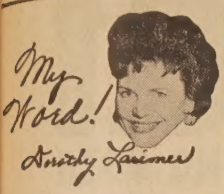 My
Word!
Dorothy Larimer